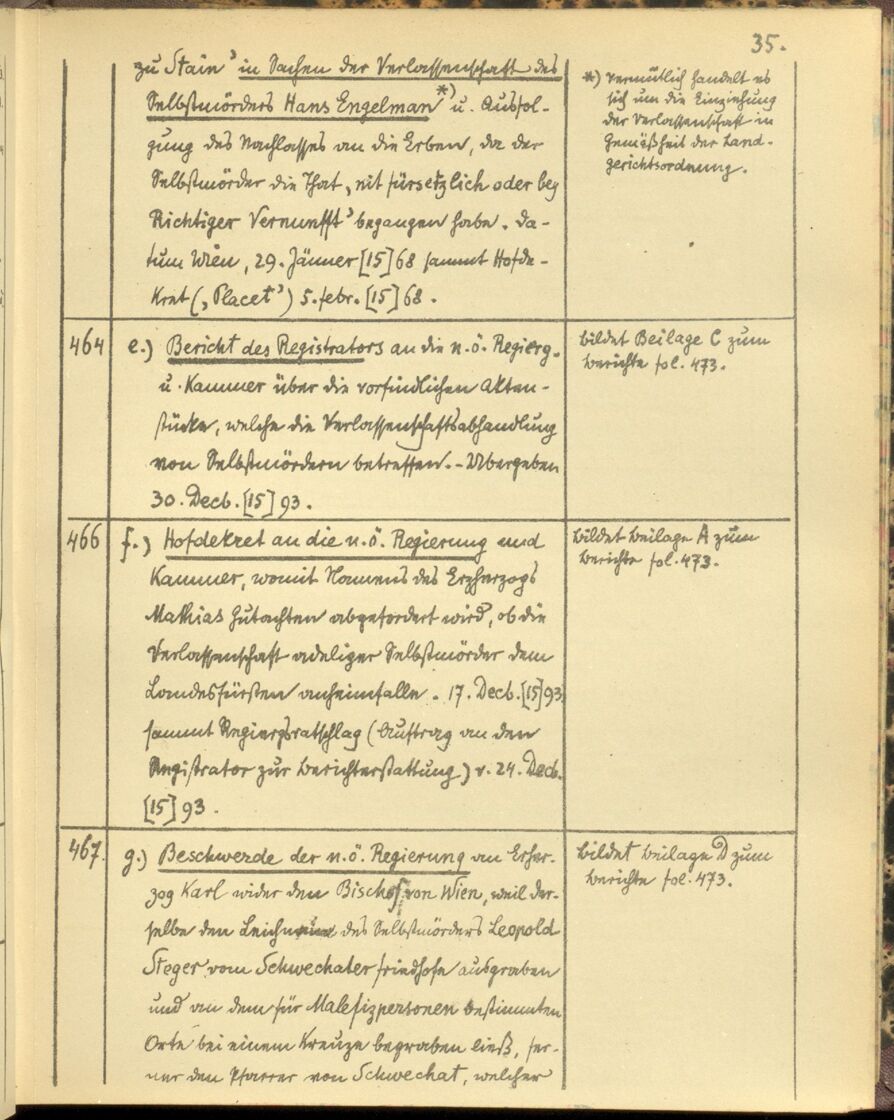 35.
zu Stain' in Sachen der Verlassenschaft des
Selbstmörders Hans Engelman *) u. Ausfol-
gung des Nachlasses an die Erben, da der
Selbstmörder die That ‚nit fürsetzlich oder bey
Richtiger Vernunfft' begangen habe. Da-
tum Wien, 29. Jänner [15]68 sammt Hofde-
kret (‚Placet') 5. febr. [15]68.
*) vermutlich handelt es
sich um die Einziehung
der Verlassenschaft in
Gemäßheit der Land-
gerichtsordnung.
464 e.) Bericht des Registrators an die n.ö. Regierg.
u. Kammer über die vorfindlichen Akten-
stücke, welche die Verlassenschaftsabhandlung
von Selbstmördern betreffen. - Übergeben
30. Decb. [15]93.
bildet Beilage C zum
Berichte fol. 473.
466 f.) Hofdekret an die n.ö. Regierung und
Kammer, womit Namens des Erzherzogs
Mathias Gutachten abgefordert wird, ob die
Verlassenschaft adeliger Selbstmörder dem
Landesfürsten anheimfalle. 17. Decb. [15]93
sammt Regiergsratschlag (Auftrag an den
Registrator zur Berichterstattung) v. 24. Decb.
[15]93.
bildet Beilage A zum
Berichte fol. 473.
467. g.) Beschwerde der n.ö. Regierung an Erher-
zog Karl wider den Bischof von Wien, weil der-
selbe den Leichnam des Selbstmörders Leopold
Steger vom Schwechater friedhofe ausgraben
und an dem für Malefizpersonen bestimmten
Orte bei einem Kreuze begraben ließ, fer-
ner den Pfarrer von Schwechat, welcher
bildet Beilage D zum
Berichte fol. 473.